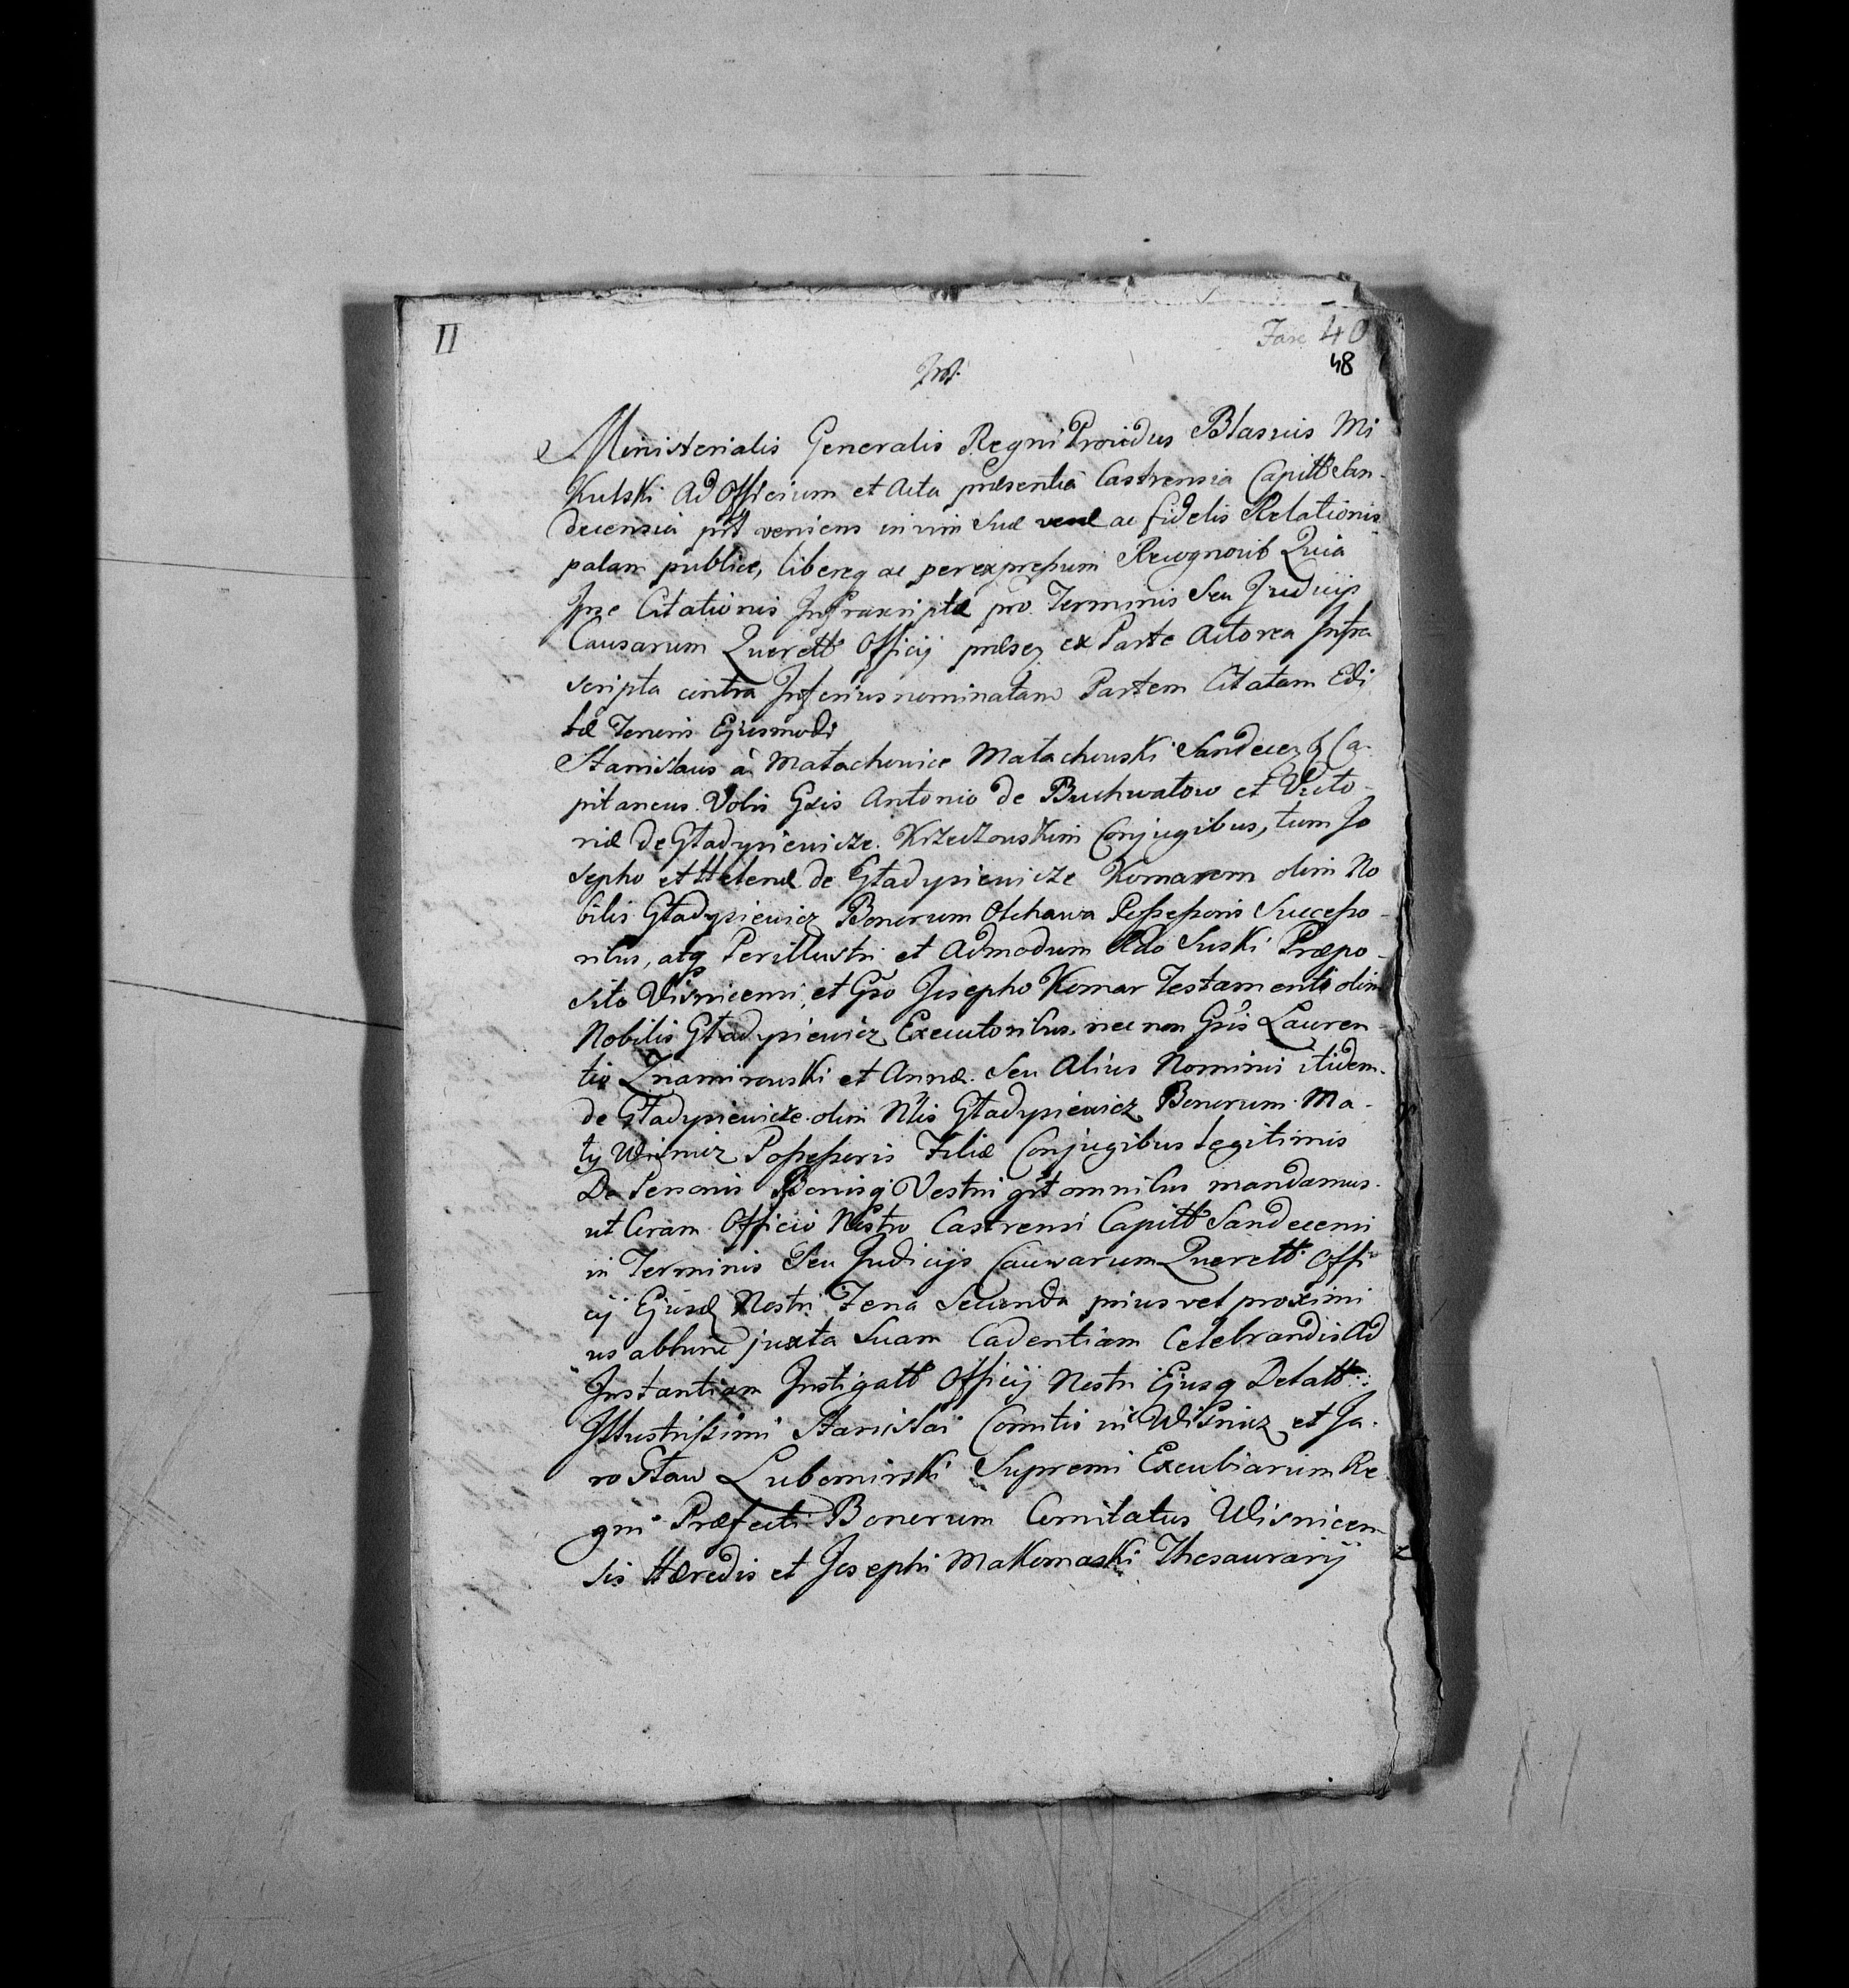 II
Fasc 40
48
Ministerialis Generalis Regni Providus Blasius Mi
Kulski Ad Officium et Acta præsentia Castrensia Capitt San-
decensia veniens in vim Suæ veræ ac fidelis Relationis
palam publice, libereq ac per expressum Recognovit Quia
Ipse Citationis Infrascriptæ pro Terminis Seu Judicijs
Causarum Querell Officij præseq ex Parte Actorea Infra
scripta contra Inferius nominatam Partem Citatam Edi
tæ Tenoris Ejusmodi
Stanislaus à Małachowice Małachowski Sandecen Ca-
pitaneus. Vobis Gsis Antonio de Buchwałow et Victo-
riæ de Gładysiewicze Krzeczowskim Conjugibus, tum Jo
sepho et Helenæ de Gładysiewicze Komarom olim No
bilis Gładysiewicz Bonorum Olchawa Possessoris Successo-
ribus, atq Perillustri et Admodum Rdo Suski Præpo-
sito Visnicensi, et Gso Josepho Komar Testamenti olim
Nobilis Gładysiewicz Executoribus. nec non Gsis Lauren
tio Znamirowski et Annæ. Seu Alius Nominis itidem
de Gładysiewicze olim Nlis Gładysiewicz Bonorum Ma-
ły Wiśnicz Possessoris Filiæ Conjugibus Legitimis
De Personis Bonisq Vestris grt omnibus mandamus.
ut Coram Officio Nostro Castrensi Capitt Sandecensi
in Terminis Seu Judicijs Causarum Querell Offi
cij Ejusd Nostri Feria Secunda prius vel proximi
us abhinc juxta Suam Cadentiam Celebrandis Ad
Instantiam Instigatt Officij Nostri Ejusq Delatt:
Illustrissimi Stanislai Comitis in Wiśnicz et Ja-
rosław Lubomirski Supremi Excubiarum Re
gni Præfecti Bonorum Comitatus Wisnicen
sis Hæredis et Josephi Makomaski Thesaurarij